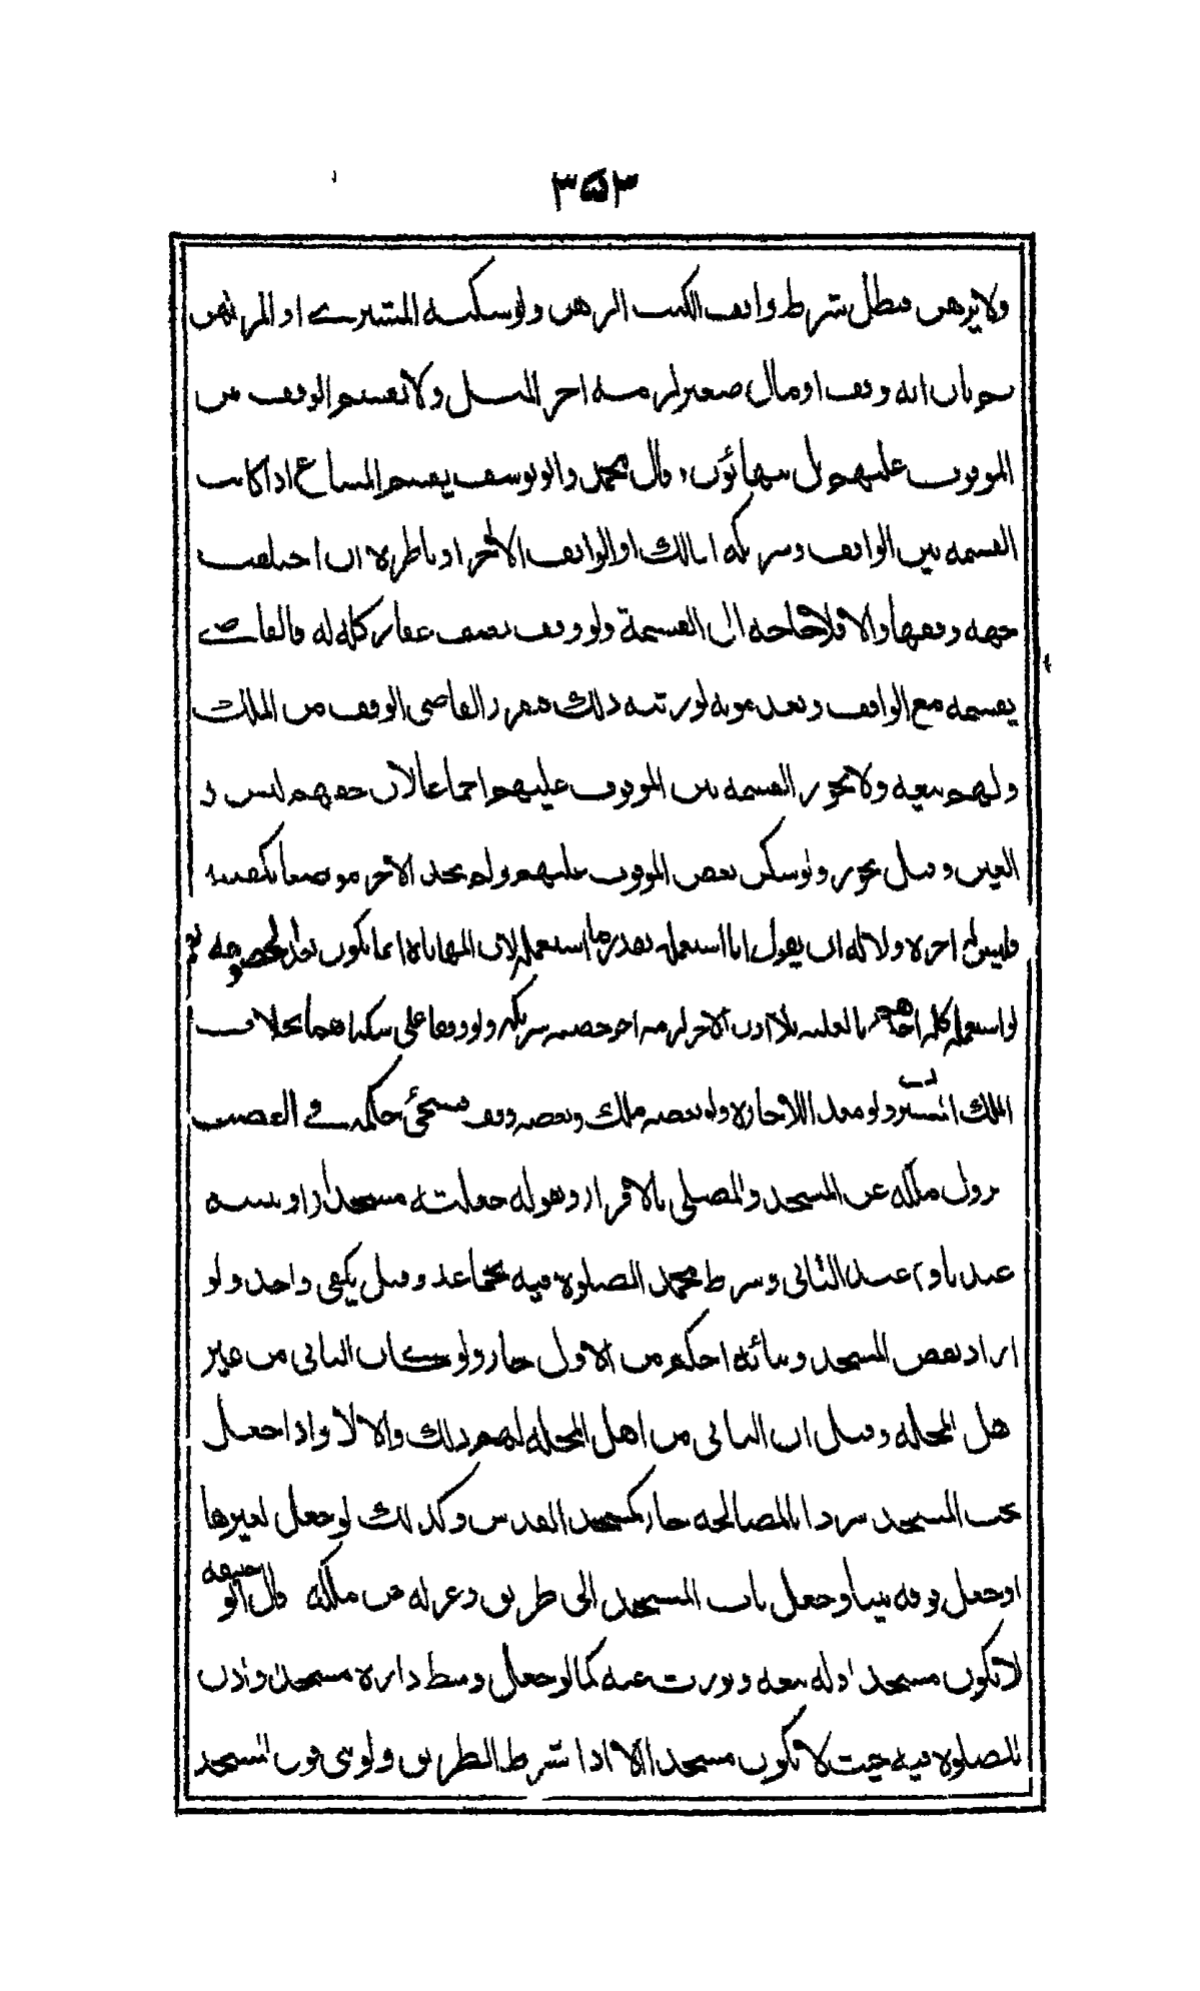 ٣٥٣
ولا يرهن فبطل شرط واقف الكتب الرهن ولو سكنه المشتري او المرتهن
ثم بان انه وقف او مال صغير لزمه اجر المثل ولا تقسم الوقف بين
الموقوف عليهم بل يتهائون وقال محمد وابو يوسف يقسم المشاع اذا كانت
القسمة بين الواقف وشريكه المالك او الواقف الاخر او ناظره ان اختلفت
جهة وقفها والا فلا حاجة الى القسمة ولو وقف نصف عقار كله له فالقاضي
يقسمه مع الواقف وبعد موته لورثته ذلك فيفرز القاضي الوقف من الملك
ولهم بيعه ولا تجوز القسمة بين الموقوف عليهم اجماعا لان حقهم ليس في
العين وقيل يجوز ولو سكن بعض الموقوف عليهم ولم يجد الاخر موضعا يكفيه
فليس له اجرة ولا له ان يقول انا استعمله بقدر ما استعمله لان المهاياة انما تكون بعد الخصومة نعم
لو استعمله كله احدهم بالغلبة بلا اذن الاخر لزمه اجر حصة شريكه ولو وقفا على سكناهما بخلاف
الملك المشترك ولو معد اللاجارة ولو بعضه ملك وبعضه وقف فسيجئ حكمه في الغصب
يزول ملكه عن المسجد والمصلى بالاقرار وبقوله جعلته مسجدا او بنيته
عند الثاني وشرط محمد الصلوة فيه بجماعة وقيل يكفي واحد ولو
اراد نقض المسجد وبنائه احكم من الاول جاز ولو كان الباني من غير
هل المحلة وقيل ان الباني من اهل المحلة لهم ذلك والا لا واذا جعل
تحت المسجد سردابا لمصالحه جاز كمسجد القدس وكذلك لو جعل لغيرها
او جعل فوقه بيتا وجعل باب المسجد الى طريق وعزله عن ملكه قال ابو حنيفة
لا تكون مسجدا وله بيعه ويورث عنه كما لو جعل وسط داره مسجدا واذن
للصلوة فيه حيث لا تكون مسجدا الا اذا شرط الطريق ولو بنى فوق المسجد